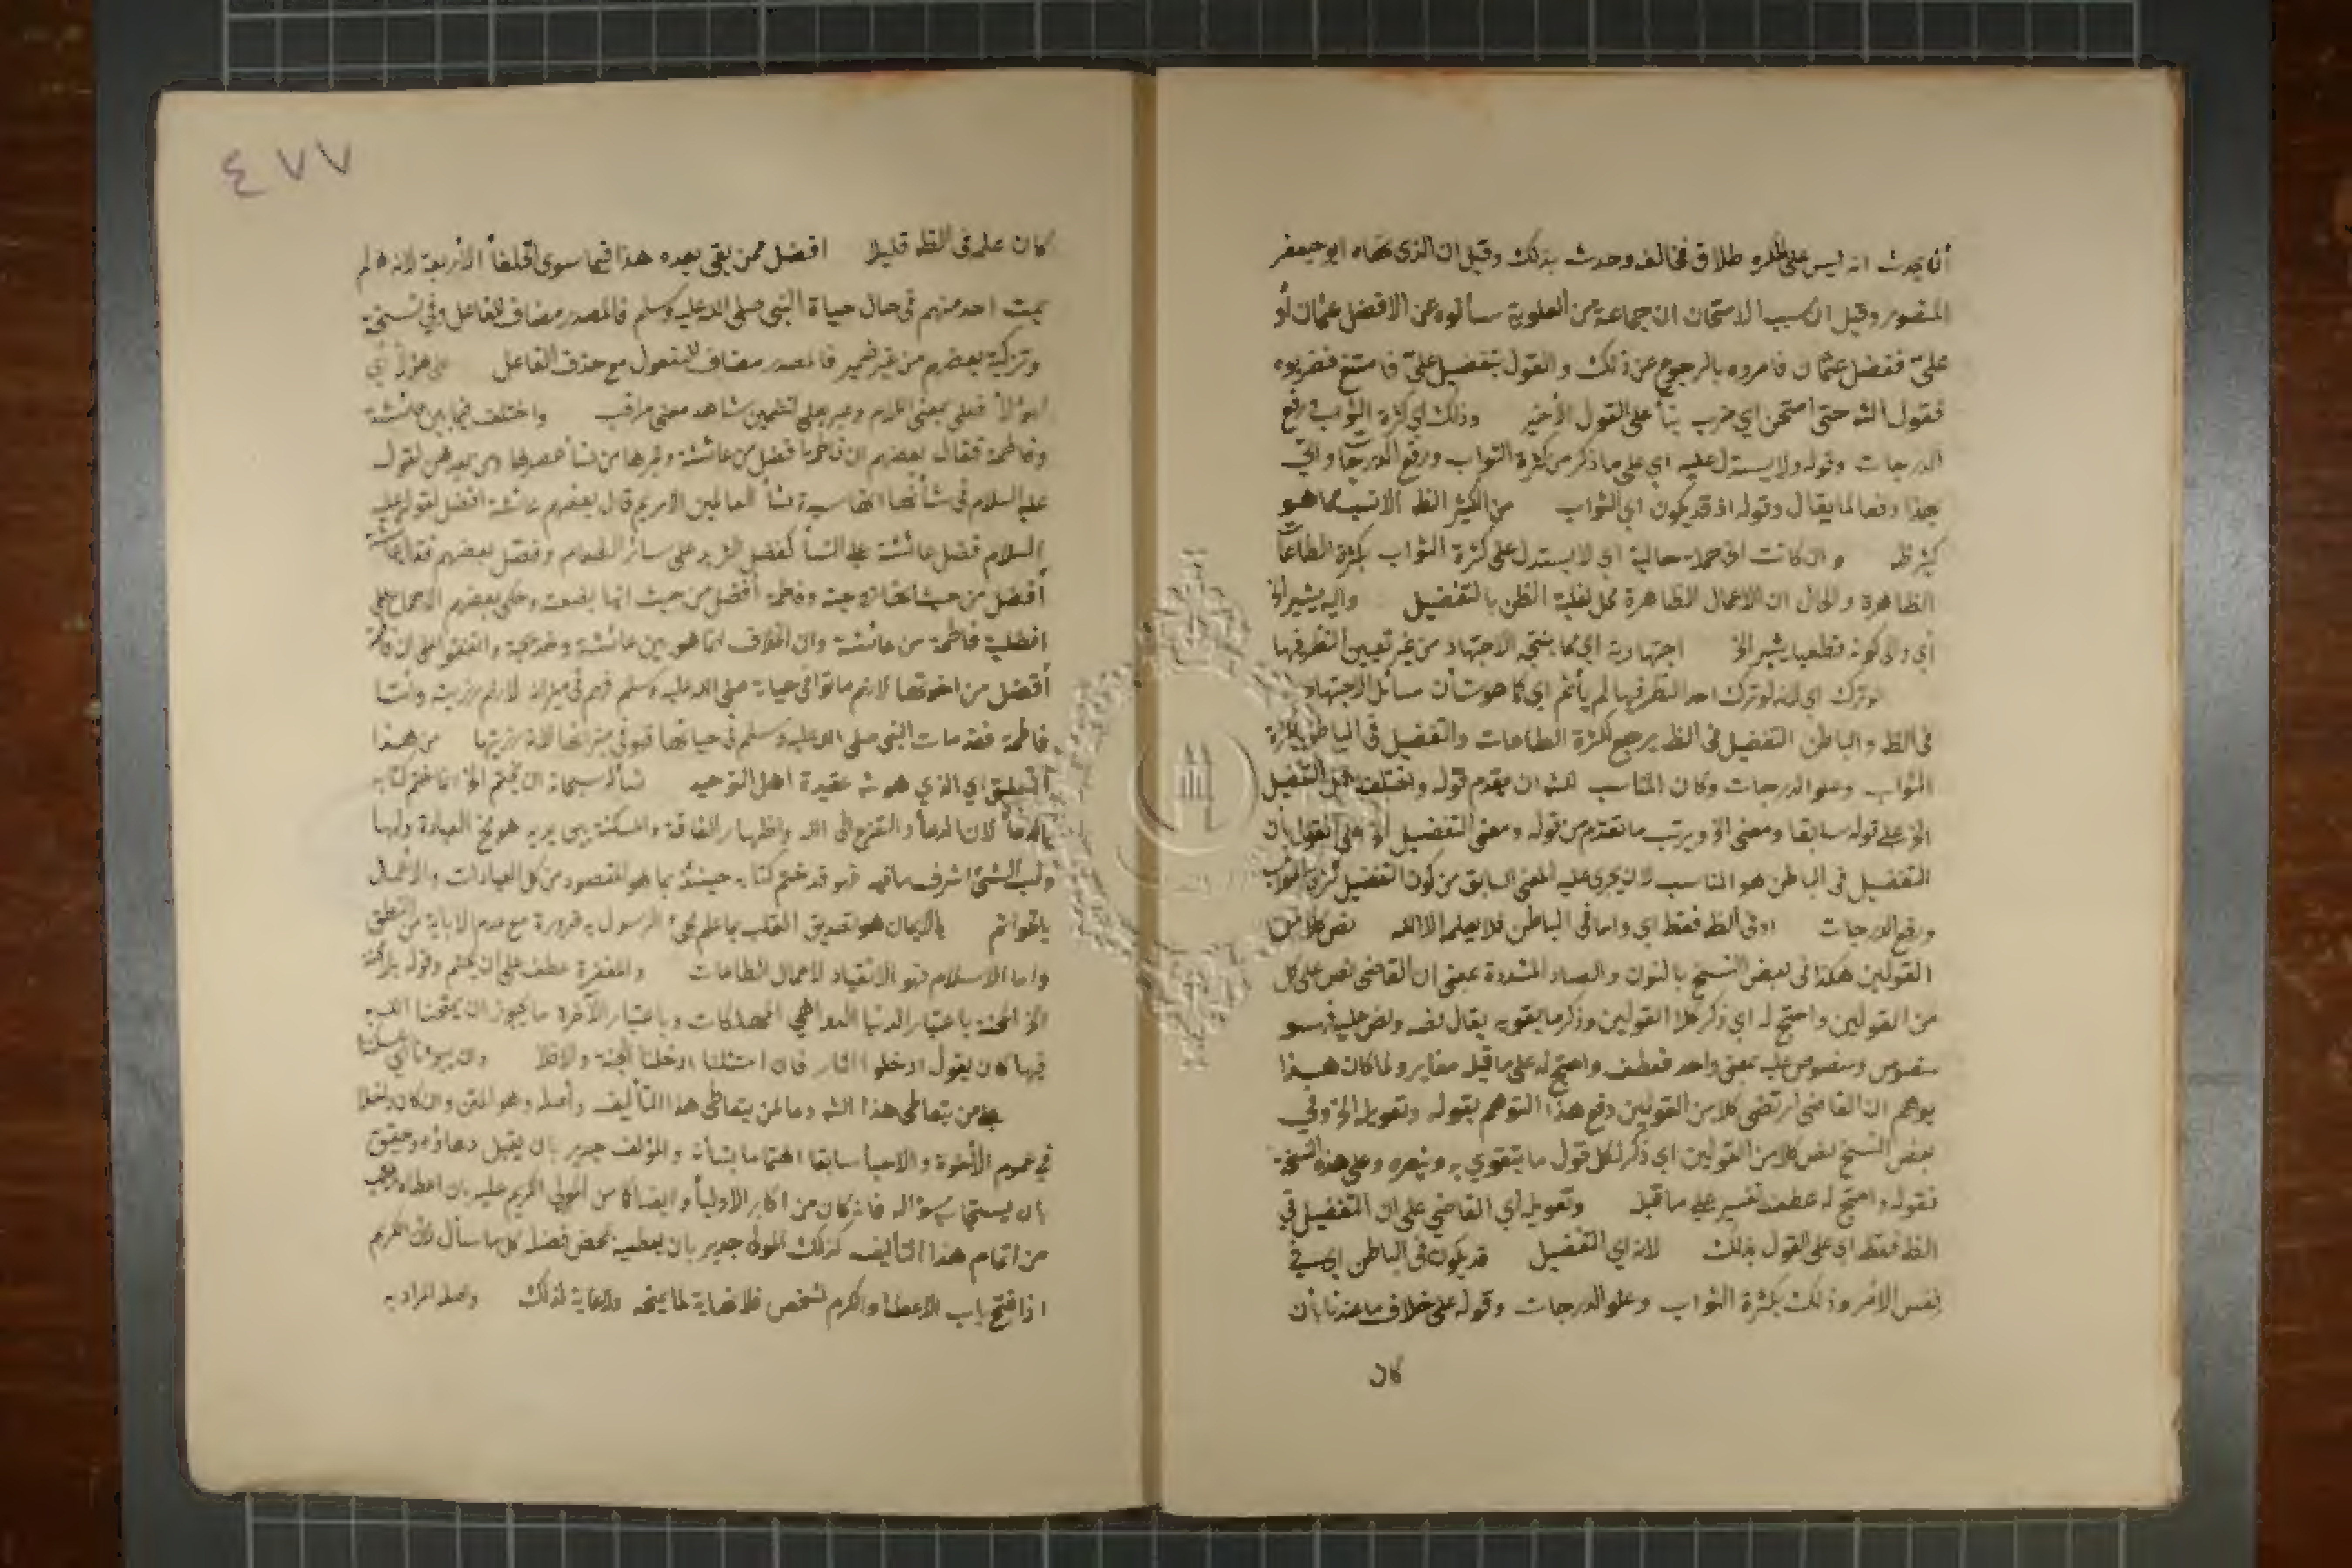 أن يحدث انه ليس على المكره طلاق فخالف وحدث بذلك وقيل ان الذي نهاه ابو جعفر
المنصور وقيل ان سبب الامتحان ان جماعة من العلوية سألوه عن الافضل عثمان أو
علي ففضل عثمان فامروه بالرجوع عن ذلك والقول بتفضيل علي فامتنع فضربوه
فقول الشه حتى امتحن اي ضرب بنأ على القول الأخير وذلك اي كثرة الثواب ورفع
الدرجات وقوله ولا يستدل عليه اي على ما ذكر من كثرة الثواب ورفع الدرجات واتى
بهذا دفعا لما يقال وقوله اذ قد يكون اي الثواب من الكثير الظه الانسب مما هو
كثير ظه وان كانت الخ جملة حالية اي لا يستدل على كثرة الثواب بكثرة الطاعات
الظاهرة والحال ان الاعمال الظاهرة محل لغلبة الظن بالتفضيل واليه يشير الخ
أي والى كونه قطعيا يشير الخ اجتهادية اي مما ينتجه الاجتهاد من غير تعيين النظر فيها
لو ترك اي انه لو ترك احد النظر فيها لم يأثم اي كما هو شأن مسائل الاجتهاد
في الظه والباطن التفضيل في الظه يرجع لكثرة الطاعات والتفضيل في الباطن لكثرة
الثواب وعلو الدرجات وكان المناسب للشه ان يقدم قوله واختلف هل التفضيل
الخ على قوله سابقا ومعنى الخ ويرتب ما تقدم من قوله ومعنى التفضيل الخ على القول بأن
التفضيل في الباطن هو المناسب لان يجري عليه المعنى السابق من كون التفضيل كثرة الثواب
ورفع الدرجات او في الظه فقط اي واما في الباطن فلا يعلمه الا الله نص كلا من
القولين هكذا في بعض النسخ بالنون والصاد المشددة بمعنى ان القاضي نص على كل
من القولين واحتج له اي ذكر كلا القولين وذكر ما يقويه يقال نصه ونص عليه فهو
منصوص ومنصوص عليه بمعنى واحد فعطف واحتج له على ما قبله مغاير ولما كان هذا
يوهم ان القاضي ارتضى كلا من القولين دفع هذا التوهم بقوله وتعويله الخ وفي
بعض النسخ نص كلا من القولين اي ذكر لكل قول ما يتقوي به وينصره وعلى هذه النسخة
فقوله واحتج له عطف تفسير على ما قبله وتعويله أي القاضي على ان التفضيل في
الظه فقط اي على القول بذلك لانه اي التفضيل قد يكون في الباطن اي في
نفس الامر وذلك بكثرة الثواب وعلو الدرجات وقوله على خلاف ما عندنا بأن
كان
٤٧٧
كان عمله في الظه قليلا افضل ممن بقي بعده هذا فيما سوى الخلفأ الأربعة لانه لم
يمت احد منهم في حال حياة النبي صلى الله عليه وسلم فالمصدر مضاف للفاعل وفي نسخة
وتزكية بعضهم من غير ضمير فالمصدر مضاف للمفعول مع حذف الفاعل على هؤلأ أي
لهؤلأ فعلى بمعنى اللام وعبر بعلى لتضمين شاهد معنى مراقب واختلف فيما بين عائشة
وفاطمة فقال بعضهم ان فاطمة افضل من عائشة وغيرها من نسأ عصرها ومن بعدهن لقوله
عليه السلام في شأنها انها سيدة نسأ العالمين الا مريم قال بعضهم عائشة افضل لقوله عليه
السلام فضل عائشة على النسأ كفضل الثريد على سائر الطعام وفصل بعضهم فقال عائشة
أفضل من حيث انها زوجته وفاطمة أفضل من حيث انها بضعته وحكى بعضهم الاجماع على
افضلية فاطمة من عائشة وان الخلاف انما هو بين عائشة وخديجة واتفقوا على ان فاطمة
أفضل من اخوتها لانهم ماتوا في حياته صلى الله عليه وسلم فهم في ميزانه لانهم رزيته وانت
فاطمة فقد مات النبي صلى الله عليه وسلم في حياتها فهو في ميزانها لانه رزيتها من هذا
التعليق اي الذي هو شه عقيدة اهل التوحيد نسأله سبحانه ان يختم الخ انما ختم كتابه
بالدعأ لان الدعأ والتضرع الى الله واظهار الفاقة والمسكنة بين يديه هو مخ العبادة ولبها
ولب الشئ اشرف ما فيه فهو قد ختم كتابه حينئذ بما هو المقصود من كل العبادات والاعمال
بالخواتم بالايمان هو تصديق القلب بما علم مجئ الرسول به ضرورة مع عدم الاباية من النطق
واما الاسلام فهو الانقياد لاعمال الطاعات والمغفرة عطف على ان يختم وقوله بلا محنة
الخ المحنة باعتبار الدنيا المهلكات وباعتبار الآخرة ما يجوز ان يمتحنا الله به
فيها كأن يقول ادخلوا النار فان امتثلنا ادخلنا الجنة والا فلا
على من يتعاطى هذا الشه دعا لمن يتعاطى هذا التأليف وأصله وهو المتن وان كان داخلا
في عموم الأخوة والاحبأ سابقا اهتماما بشأنه والمؤلف جدير بان يقبل دعاؤه وحقيق
بان يستجاب سؤاله فانه كان من اكابر الاوليأ وايضا كما من المولى الكريم عليه بان اعطاه
من اتمام هذا التأليف كذلك المولى جدير بان يعطيه بمحض فضله كل ما سأل لان الكريم
اذا فتح باب الاعطا والكرم لشخص فلا نهاية لما يمنحه ولا غاية لذلك وأصله المراد به